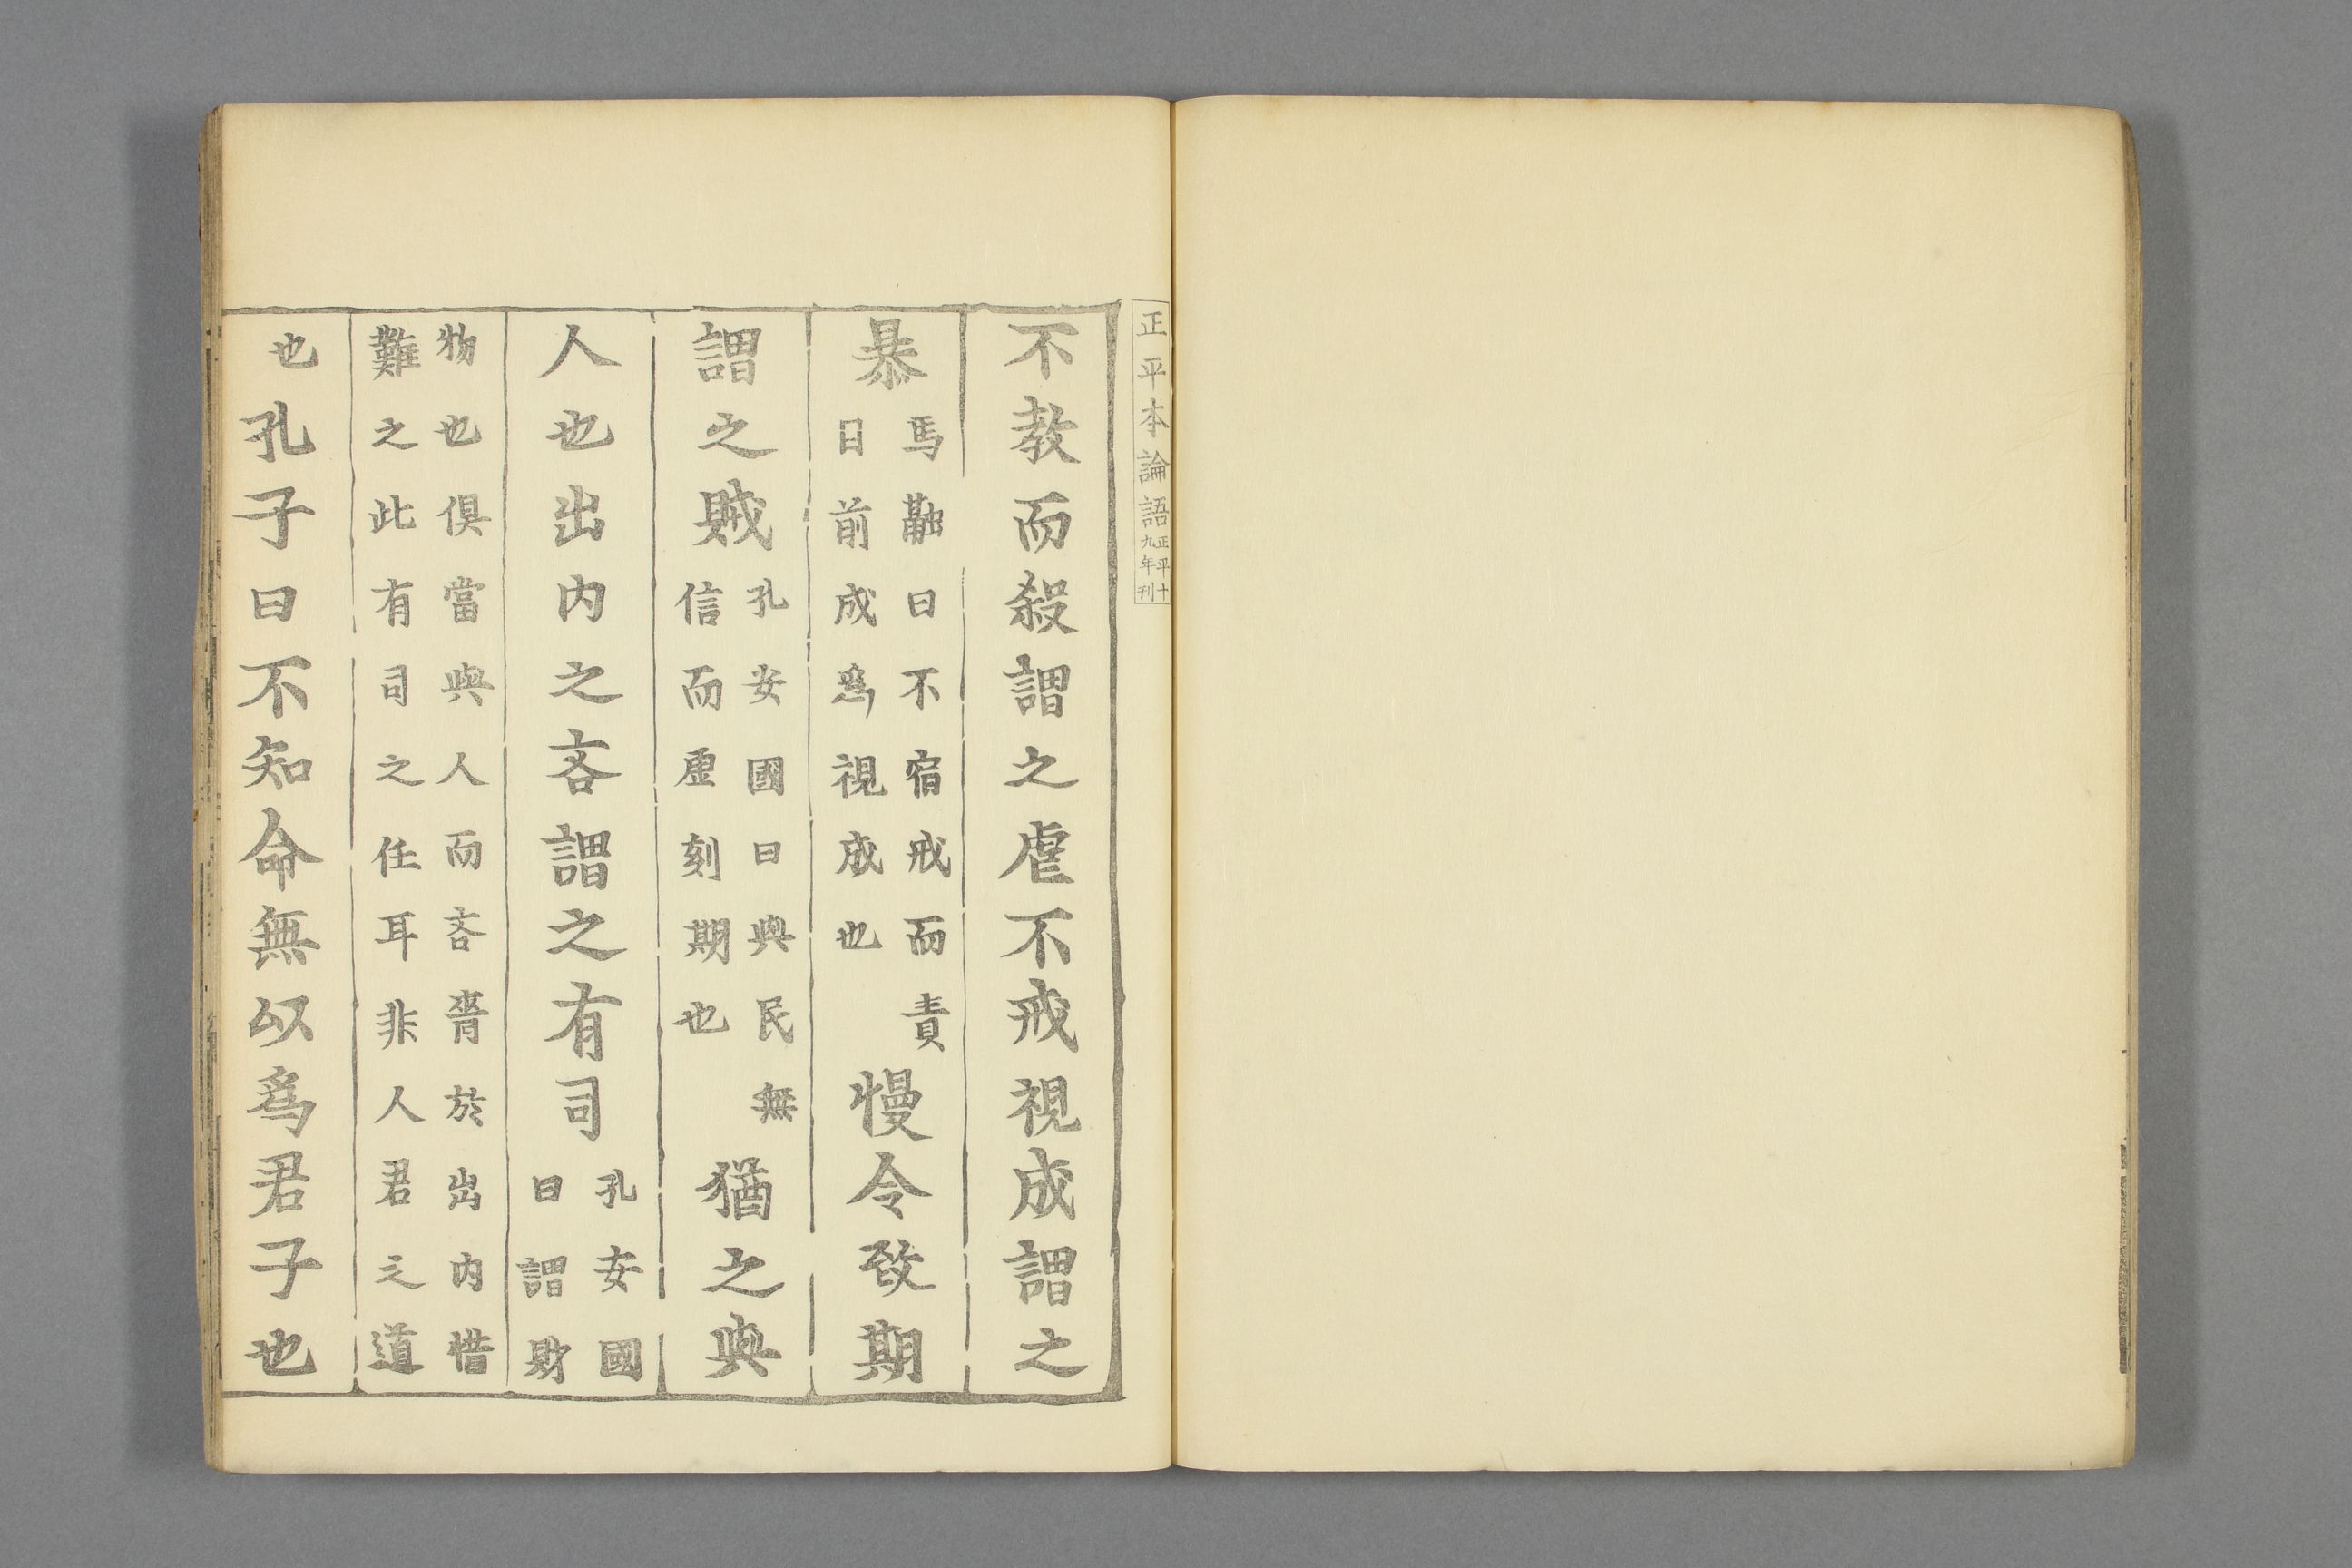 正平本論語正平十九年刊
不教而殺謂之虐不戒視成謂之
暴馬融曰不宿戒而責目前成爲視成也慢令致期
謂之賊孔安國曰與民無信而虛刻期也猶之與
人也出内之吝謂之有司孔安國曰謂財
物也俱當與人而吝嗇於出内惜難之此有司之任耳非人君之道
也孔子曰不知命無以爲君子也